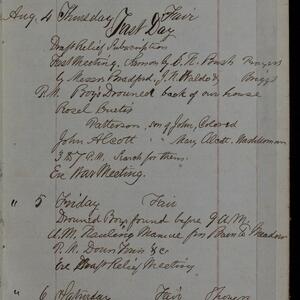 Aug. 4 Thursday Fair
Fast Day
Draft Relief Subscription
Fast Meeting. Sermon by E. N. Bush Prayers
by Messrs Bradford, J. N. Waldo & Briggs
P.M. Boys Drowned back of our house
Rosel Curtis
Patterson, son of John, Colored
John Alcott
3 to 7 P.M. Search for them.
Eve War Meeting.
" 5 Friday Fair
Drowned Boys found before 9 A.M.
A.M. Hauling Manure for Meadow
P.M. Down Town &c
Eve Draft Relief Meeting
" 6 Saturday Fair